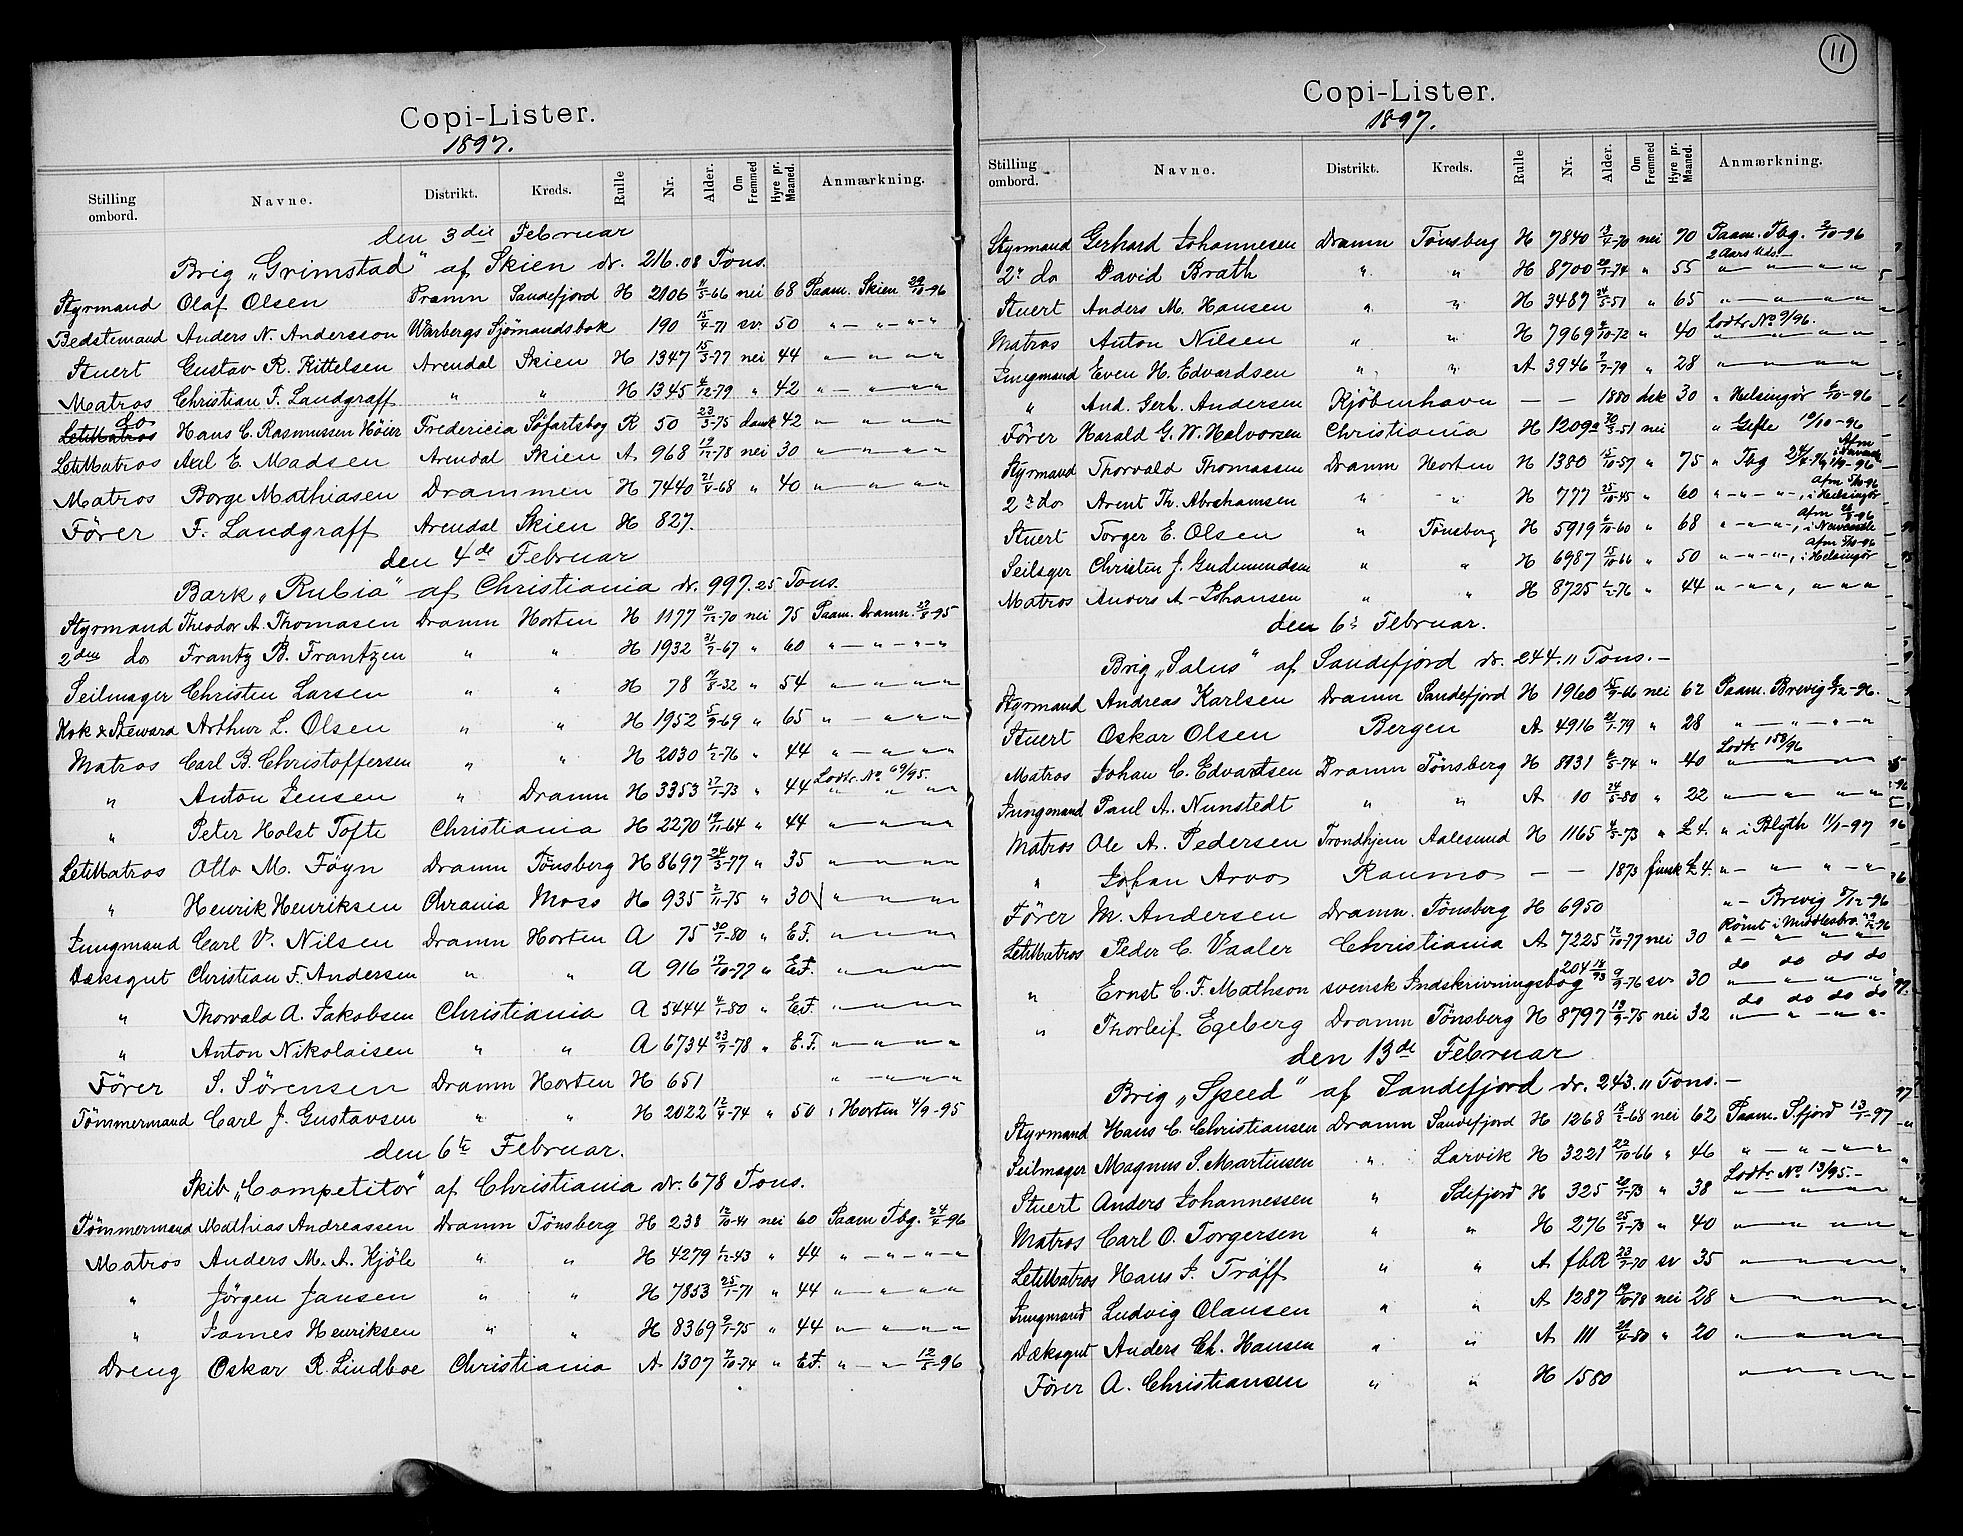 Copi-Lister.
1897.
Stilling ombord. Navne. Distrikt. Kreds. Rulle Nr. Alder. Om Fremmed Hyre pr. Maaned. Anmærkning.
den 3die Februar
Brig „Grimstad" af Skien dr. 216.08 Tons.
Styrmand Olaf Olsen Dramn Sandefjord H 2106 4/5-66 nei 68 Paam. Skien 29/10-96
Bedstemand Anders N. Andersson Warbergs Sjömandsbok 190 15/4-71 sv. 50 " — " — " — "
Stuert Gustav R. Kittelsen Arendal Skien H 1347 15/3-77 nei 44 " — " — " — "
Matros Christian F. Landgraff " " H 1345 4/12-79 " 42 " — " — " — "
Do Hans C. Rasmussen Höier Fredericia Söfartsbog R 50 23/3-75 dansk 42 " — " — " — "
LetMatros Axl E. Madsen Arendal Skien A 968 19/12-78 nei 30 " — " — " — "
Matros Borge Mathiasen Drammen H 7440 21/4-68 " 40 " — " — " — "
Förer F. Landgraff Arendal Skien H 827.
den 4de Februar
Bark „Rubia" af Christiania dr. 997.25 Tons.
Styrmand Theodor A. Thomasen Dramn Horten H 1177 10/12-70 nei 75 Paam. Dramn. 13/8-95
2den do Frantz B. Frantzen " " H 1932 31/7-67 " 60 " — " — " — "
Seilmager Christen Larsen " " H 78 17/8-32 " 54 " — " — " — "
Kok & Steward Arthur L. Olsen " " H 1952 5/9-69 " 65 " — " — " — "
Matros Carl B. Christoffersen " " H 2030 1/2-76 " 44 " — " — " — "
" Anton Jensen " Dramn H 3353 27/1-73 " 44 Lodtr. No. 69/95.
" Peter Holst Tofte Christiania H 2270 19/11-64 " 44 " — " — " — "
LetMatros Otto M. Föyn Dramn Tönsberg H 8697 24/3-77 " 35 " — " — " — "
" Henrik Henriksen Chrania Moss H 935 2/11-75 " 30 " — " — " — "
Jungmand Carl V. Nilsen Dramn Horten A 75 30/1-80 " E.F. " — " — " — "
Dæksgut Christian F. Andersen " " A 916 17/10-77 " E.F. " — " — " — "
" Thorvald A. Jakobsen Christiania A 5444 4/1-80 " E.F. " — " — " — "
" Anton Nikolaisen " " A 6734 23/7-78 " E.F. " — " — " — "
Förer S. Sörensen Dramn Horten H 651 " — " — " — "
Tömmermand Carl J. Gustavsen " " H 2022 12/4-74 " 50 " Horten 4/9-95
den 6te Februar.
Skib „Competitor" af Christiania dr. 678 Tons.
Tömmermand Mathias Andreassen Dramn Tönsberg H 238 12/10-41 nei 60 Paam Tbg. 24/4-96
Matros Anders M. A. Kjöle " " H 4279 1/12-43 " 44 " — " — " — "
" Jörgen Jansen " " H 7853 25/1-71 " 44 " — " — " — "
" James Henriksen " " H 8369 9/1-75 " 44 " — " — " — "
Dreng Oskar R. Lindboe Christiania A 1307 7/10-74 " E.F. " — " — 12/5-96
11
Copi-Lister.
1897.
Stilling ombord. Navne. Distrikt. Kreds. Rulle Nr. Alder. Om Fremmed Hyre pr. Maaned. Anmærkning.
Styrmand Gerhard Johannesen Dramn Tönsberg H 7840 13/4-70 nei 70 Paam. Tbg. 2/10-96
2r do David Brath " " H 8700 20/1-74 " 55 2 Aars Uds.
Stuert Anders M. Hansen " " H 3487 24/5-51 " 65 " — " — " — "
Matros Anton Nilsen " " H 7969 4/10-72 " 40 Lodtr. No 9/96.
Jungmand Even H. Edvardsen " " A 3946 2/7-79 " 28 " — " — " — "
" And. Gerh. Andersen Kjöbenhavn — — 1880 dsk 30 " Helsingör 6/10-96
Förer Harald G. W. Halvorsen Christiania H 1209a 30/3-51 nei " Gefle 10/10-96
Styrmand Thorvald Thomassen Dramn Horten H 1380 15/10-57 " 75 " Tbg 24/4-96 Afm i Newcastle 1/9-96
2r do Arent Th. Abrahamsen " " H 777 25/10-45 " 60 " — " — " —, Afm 5/10-96 i Helsingör
Stuert Torger E. Olsen " Tönsberg H 5919 6/10-60 " 68 " — " — " —, Afm 28/8-96 i Newcastle
Seilsger Christen J. Gudmundsen " " H 6987 15/10-66 " 50 " — " — " —, Afm 5/10-96 i Helsingör
Matros Anders A. Johansen " " H 8725 1/2-76 " 44 " — " — ", " — " — "
den 6te Februar.
Brig „Salus" af Sandefjord dr. 244.11 Tons.—
Styrmand Andreas Karlsen Dramn Sandefjord H 1960 15/9-66 nei 62 Paam. Brevig 8/12-96.
Stuert Oskar Olsen Bergen A 4916 21/1-79 " 28 " — " — " — "
Matros Johan C. Edvartsen Dramn Tönsberg H 8131 6/5-74 " 40 Lodtr 158/96
Jungmand Paul A. Nunstedt " " A 10 24/5-80 " 22 " — " — " — "
Matros Ole A. Pedersen Trondhjem Aalesund H 1165 4/5-73 " £4. " i Blyth 11/1-97
" Johan Arvo Raumo — — 1873 finsk £4. " — " — " — "
Förer M. Andersen Dramn. Tönsberg H 6950 " — Brevig 8/12-96
LetMatros Peder C. Vaaler Christiania A 7225 12/10-77 nei 30 Römt i Middlesbro. 19/12-96
" Ernst C. F. Mathson svensk Indskrivningsbog 204 18/93 9/9-76 sv. 30 do do do do
" Thorleif Egeberg Dramn Tönsberg H 8797 13/9-75 nei 32 do do do do
den 13de Februar
Brig „Speed" af Sandefjord dr. 243.11 Tons.—
Styrmand Hans C. Christiansen Dramn Sandefjord H 1268 18/2-68 nei 62 Paam. S.fjord 13/1-97
Seilmager Magnus S. Martinsen " Larvik H 3221 22/10-66 " 46 " — " — " — "
Stuert Anders Johannessen " Sdefjord H 325 20/1-73 " 38 Lodtr. No. 13/95.—
Matros Carl O. Torgersen " " H 276 25/1-73 " 40 " — " — " — "
LetMatros Hans J. Träff " " A fbR 23/7-70 sv 35 " — " — " — "
Jungmand Ludvig Olausen " " A 1287 19/10-78 nei 28 " — " — " — "
Dæksgut Anders Ch. Hansen " " A 111 21/4-80 " 20 " — " — " — "
Förer A. Christiansen " " H 1580 " — " — " — "